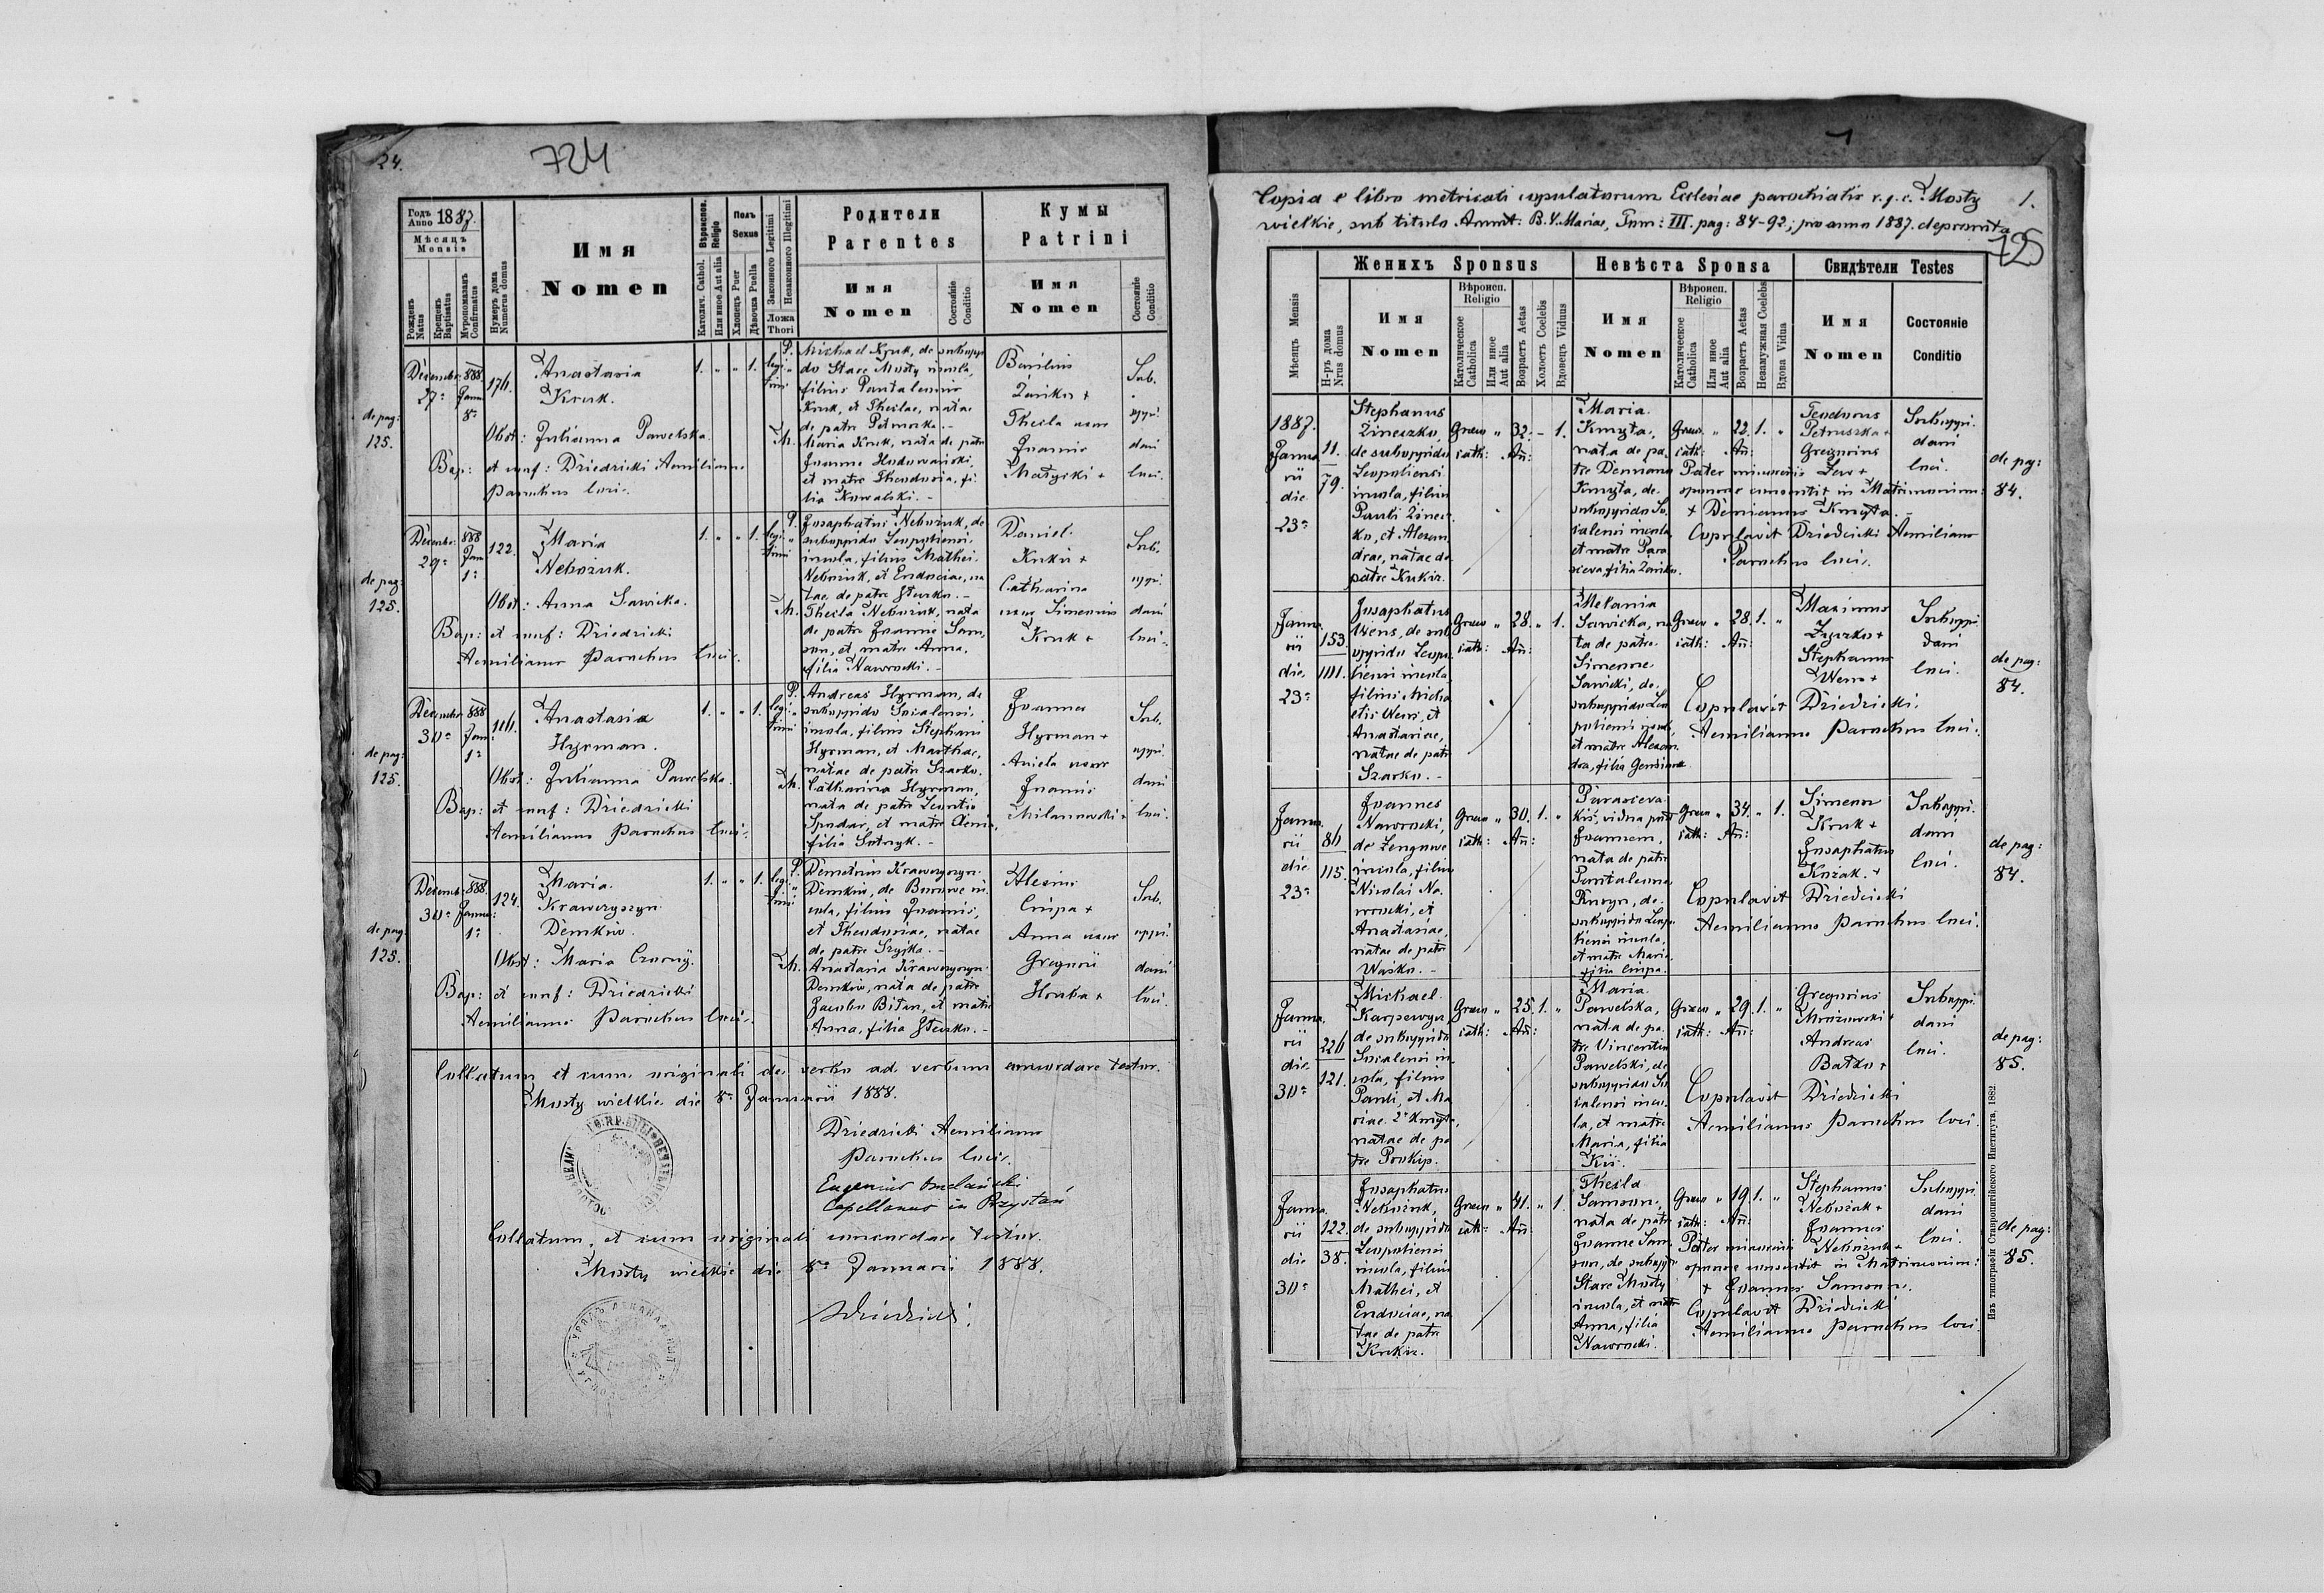 24.
724
Годъ Anno 1887.
Мѣсяцъ Mensis
Рожденъ Natus
Крещенъ Baptisatus
Мѵропомазанъ Confirmatus
Нумеръ дома Numerus domus
Имя Nomen
Вѣроиспов. Religio
Католич. Cathol.
Или иное Aut alia
Полъ Sexus
Хлопецъ Puer
Дѣвочка Puella
Законного Legitimi
Незаконного Illegitimi
Ложа Thori
Родители Parentes
Имя Nomen
Состояніе Conditio
Кумы Patrini
Имя Nomen
Состояніе Conditio
de pag: 125.
Decembr. 27a
888 Janua 8a
176.
Anastasia
Kruk.
1. " " 1. legi- timi
Obst: Julianna Pawelska.
Bap: et conf: Driedricki Aemilianus
Parochus loci.
P. Michael Kruk, de suboppi
do Stare Mosty incola,
filius Pantalemonis
Kruk, et Theclae, natae
de patre
M. Maria Kruk, nata de patre
Joanne
et matre Theodosia, fi
lia Kowalski. -
Basilius
+
Thecla uxor
Joannis
+
Sub.
oppi
dani
loci.
de pag: 125.
Decembr. 29a
888 Jan 1a
122.
Maria
Neboziuk.
1. " " 1. legi- timi
Obst: Anna Sawicka.
Bap: et conf: Driedricki
Aemilianus Parochus loci.
P. Josaphatus Neboziuk, de
suboppido Leopoliensi
incola, filius Mathei
Neboziuk, et Eudociae, na
tae de patre
M. Thecla Neboziuk, nata
de patre Joanne Sam
son, et matre Anna,
filia Nawrocki. -
Daniel
Kukiz +
Catharina
uxor Simeonis
Kruk +
Sub.
oppi
dani
loci.
de pag: 125.
Decembr 30a
888 Jan: 1a
Anastasia
Hyrman.
1. " " 1. legi- timi
Obst: Julianna Pawelska.
Bap: et conf: Driedricki
Aemilianus Parochus loci.
P. Andreas Hyrman, de
suboppido Socalensi
incola, filius Stephani
Hyrman, et Marthae,
natae de patre Szarko.
M. Catharina Hyrman,
nata de patre Leontio
et matre Xenia,
filia
Joannes
Hyrman +
Aniela uxor
Joannis
Milanowski +
Sub.
oppi
dani
loci.
de pag: 125.
Decemb: 30a
888. Janua: 1a
124.
Maria
Krawczyszyn
Demkiw.
1. " " 1. legi- timi
Obst: Maria Czorny.
Bap: et conf: Driedricki
Aemilianus Parochus loci.
P. Demetrius Krawczyszyn
Demkiw, de Borowe in
cola, filius Joannis,
et Theodosiae, natae
de patre
M. Anastasia Krawczyszyn
Demkiw, nata de patre
Jacobo Bitan, et matre
Anna, filia
Alexius
Cieipa +
Anna uxor
Gregorii
+
Sub.
oppi
dani
loci.
Collatum et cum originali de verbo ad verbum concordare testor.
Mosty wielkie die 8a Januarii 1888.
Driedricki Aemilianus
Parochus loci.
Eugenius
Capellanus in Przystań
Collatum, et cum originali concordare testor.
Mosty wielkie die 8a Januarii 1888.
Driedricki.
1
Copia e libro metricali copulatorum Ecclesiae parochialis r. g. c. Mosty 1.
wielkie, sub titulo Annunt: B. V. Mariae, Tom: III. pag: 84-92; pro anno 1887. deprompta.
725
Мѣсяцъ Mensis
Н-ръ дома Nrus domus
Женихъ Sponsus
Имя Nomen
Вѣроисп. Religio
Католическое Catholica
Или иное Aut alia
Возрастъ Aetas
Холостъ Coelebs
Вдовецъ Viduus
Невѣста Sponsa
Имя Nomen
Вѣроисп. Religio
Католическое Catholica
Или иное Aut alia
Возрастъ Aetas
Незамужная Coelebs
Вдова Vidua
Свидѣтели Testes
Имя Nomen
Состояніе Conditio
1887.
Janua
rii
die
23a
11.
79.
Stephanus
Zineszko,
de suboppido
Leopoliensi
incola, filius
Pauli Zinesz
ko, et Alexan
drae, natae de
patre Kukiz.
Graeco cath: " 32. Añ: - 1.
Maria
Kmyta,
nata de pa
tre Demiano
Kmyta, de
suboppido So
calensi incola,
et matre Para
sceva, filia
Graeco cath: " 22. Añ: 1. "
Teodorus
Petruszka +
Gregorius
Lew +
Suboppi.
dani
loci.
Pater minorennis
sponsae consentit in Matrimonium:
+ Demianus Kmyta. -
Copulavit Driedricki Aemilianus
Parochus loci.
de pag: 84.
Janua
rii
die
23a
153.
Josaphatus
Wens, de sub
oppido Leopo
liensi incola,
filius Micha
elis Wens, et
Anastasiae,
natae de patre
Szarko. -
Graeco cath: " 28. Añ: " 1.
Melania
Sawicka, na
ta de patre
Simeone
Sawicki, de
suboppido Leo
poliensi incola,
et matre Alexan
dra, filia
Graeco cath: " 28. Añ: 1. "
Maximus
Zyszko +
Stephanus
Wens +
Suboppi.
dani
loci.
Copulavit Driedricki
Aemilianus Parochus loci.
de pag: 84.
Janua
rii
die
23a
86
115.
Joannes
Nawrocki,
de
incola, filius
Nicolai Na
wrocki, et
Anastasiae,
natae de patre
Waśko. -
Graeco cath: " 30. Añ: 1. "
Parasceva
Kiś, vidua post
Joannem,
nata de patre
Pantalemone
de
suboppido Leopo
liensi incola,
et matre Maria
filia Cieipa.
Graeco cath: " 34. Añ: " 1.
Simeon
Kruk +
Josaphatus
Kozak. +
Suboppi.
dani
loci.
Copulavit Driedricki
Aemilianus Parochus loci.
de pag: 84.
Janua
rii
die
30a
226
121.
Michael
Karpowycz,
de suboppido
Socalensi in
cola, filius
Pauli, et Ma
riae 2o Kmyta,
natae de pa
tre Prokip.
Graeco cath: " 25. Añ: 1. "
Maria
Pawelska,
nata de pa
tre Vincentio
Pawelski, de
suboppido So
calensi inco
la, et matre
Maria, filia
Kiś.
Graeco cath: " 29. Añ: 1. "
Gregorius
Mrozowski +
Andreas
Batko +
Suboppi.
dani
loci.
Copulavit Driedricki
Aemilianus Parochus loci.
de pag: 85.
Janua
rii
die
30a
122.
38.
Josaphatus
Neboziuk,
de suboppido
Leopoliensi
incola, filius
Mathei, et
Eudociae, na
tae de patre
Kukiz.
Graeco cath: " 41. Añ: " 1.
Thecla
Samson,
nata de patre
Joanne Sam
son, de suboppi
Stare Mosty
incola, et matre
Anna, filia
Nawrocki.
Graeco cath: " 19. Añ: 1. "
Stephanus
Neboziuk +
Joannes
Neboziuk +
Suboppi.
dani
loci.
Pater minorennis
sponsae consentit in Matrimonium:
+ Joannes Samson.
Copulavit Driedricki
Aemilianus Parochus loci.
de pag: 85.
Изъ типографіи Ставропигійского Института, 1882.